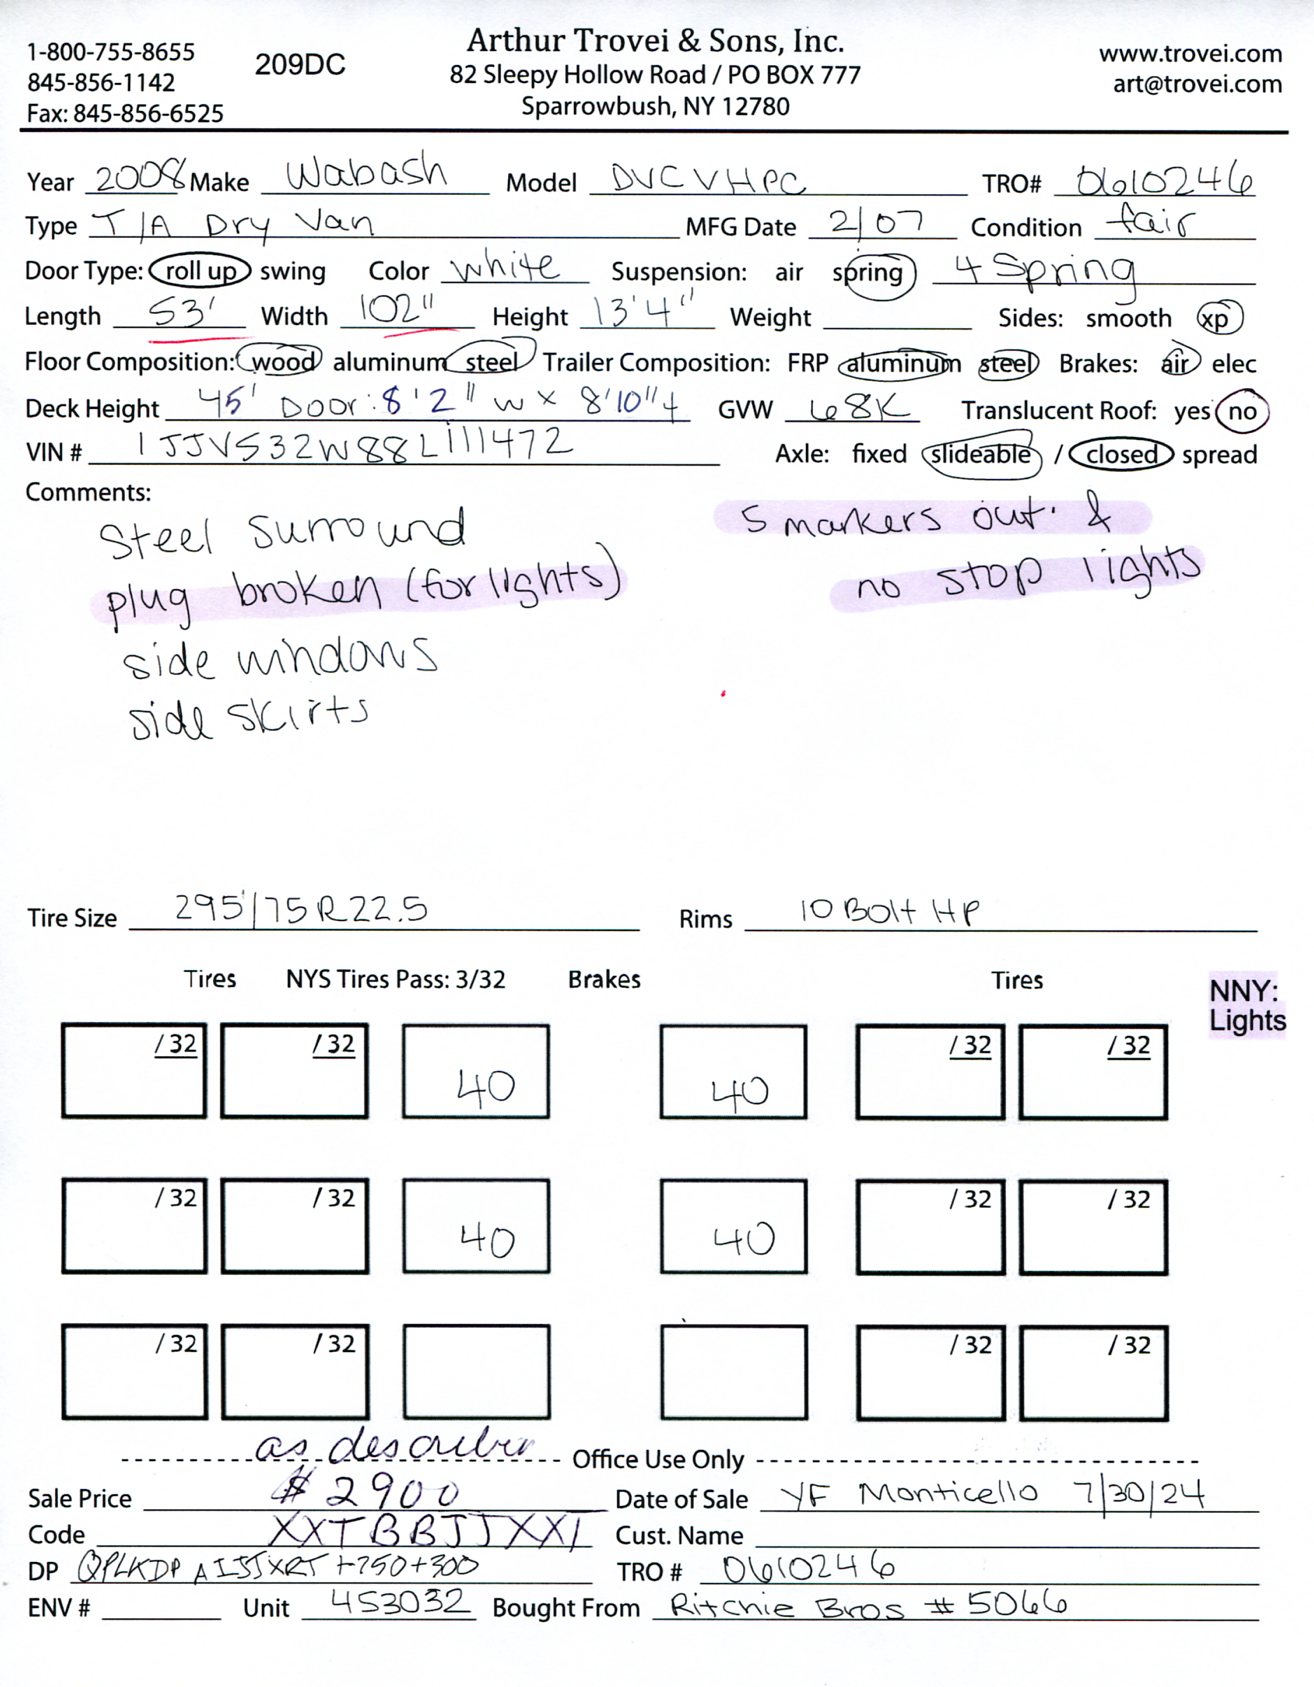 1-800-755-8655
845-856-1142
Fax: 845-856-6525
209DC
Arthur Trovei & Sons, Inc.
82 Sleepy Hollow Road / PO BOX 777
Sparrowbush, NY 12780
www.trovei.com
art@trovei.com
Year 2008 Make Wabash Model DVCVHPC TRO# 0610246
Type T/A Dry Van MFG Date 2/07 Condition fair
Door Type: roll up swing Color white Suspension: air spring 4 Spring
Length 53' Width 102" Height 13'4" Weight Sides: smooth xp
Floor Composition: wood aluminum steel Trailer Composition: FRP aluminum steel Brakes: air elec
Deck Height 45' Door: 8'2" w x 8'10" GVW 68K Translucent Roof: yes no
VIN # 1JJV532W88L111472 Axle: fixed slideable / closed spread
Comments:
Steel Surround
plug broken (for lights)
side windows
side skirts
5 markers out. &
no stop lights
Tire Size 295/75R22.5 Rims 10 Bolt HP
Tires NYS Tires Pass: 3/32 Brakes Tires
NNY:
Lights
/ 32 / 32 40 40 / 32 / 32
/ 32 / 32 40 40 / 32 / 32
/ 32 / 32 / 32 / 32
as describer Office Use Only
Sale Price $2900 Date of Sale YF Monticello 7/30/24
Code XXTBBJJXXL Cust. Name
DP +750+300 TRO # 0610246
ENV # Unit 453032 Bought From Ritchie Bros #5066